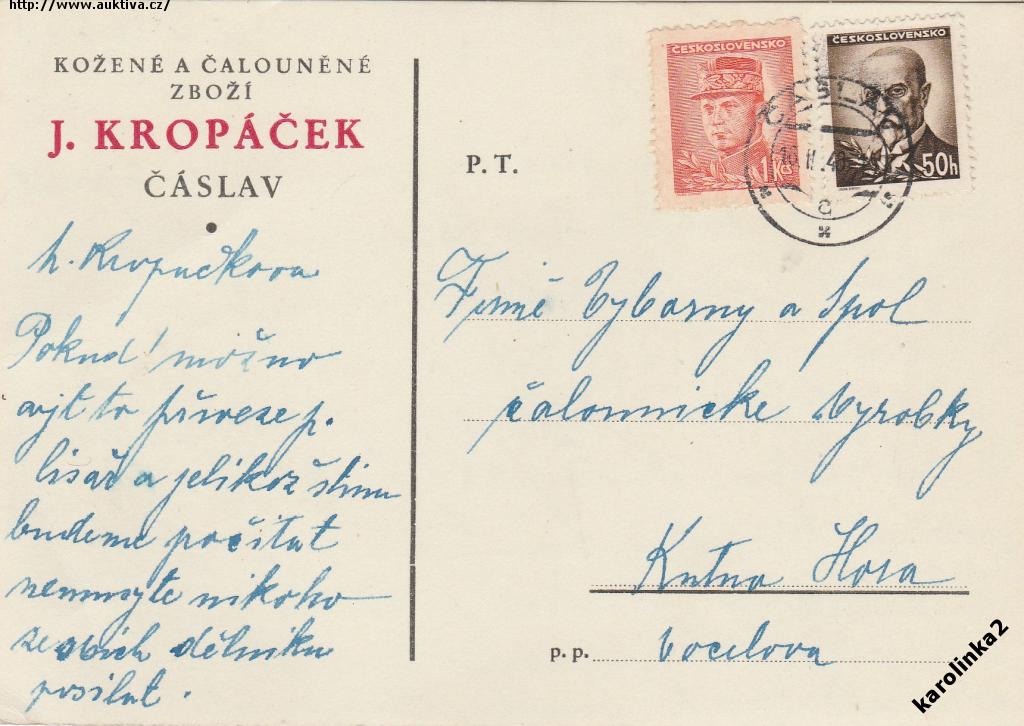 http://www.auktiva.cz/
KOŽENÉ A ČALOUNĚNÉ
ZBOŽÍ
J. KROPÁČEK
ČÁSLAV
Pokud možno
přiveze p.
lisař a jelikož
budeme počítat
nemusyte nikoho
dělníku
posilat.
P. T.
ČESKOSLOVENSKO
1 Kčs
ČESKOSLOVENSKO
50h
ČÁSLAV
Firmě Vybarny a Spol
čalounicke vyrobky
Kutna Hora
p. p. Vocelova
karolinka2